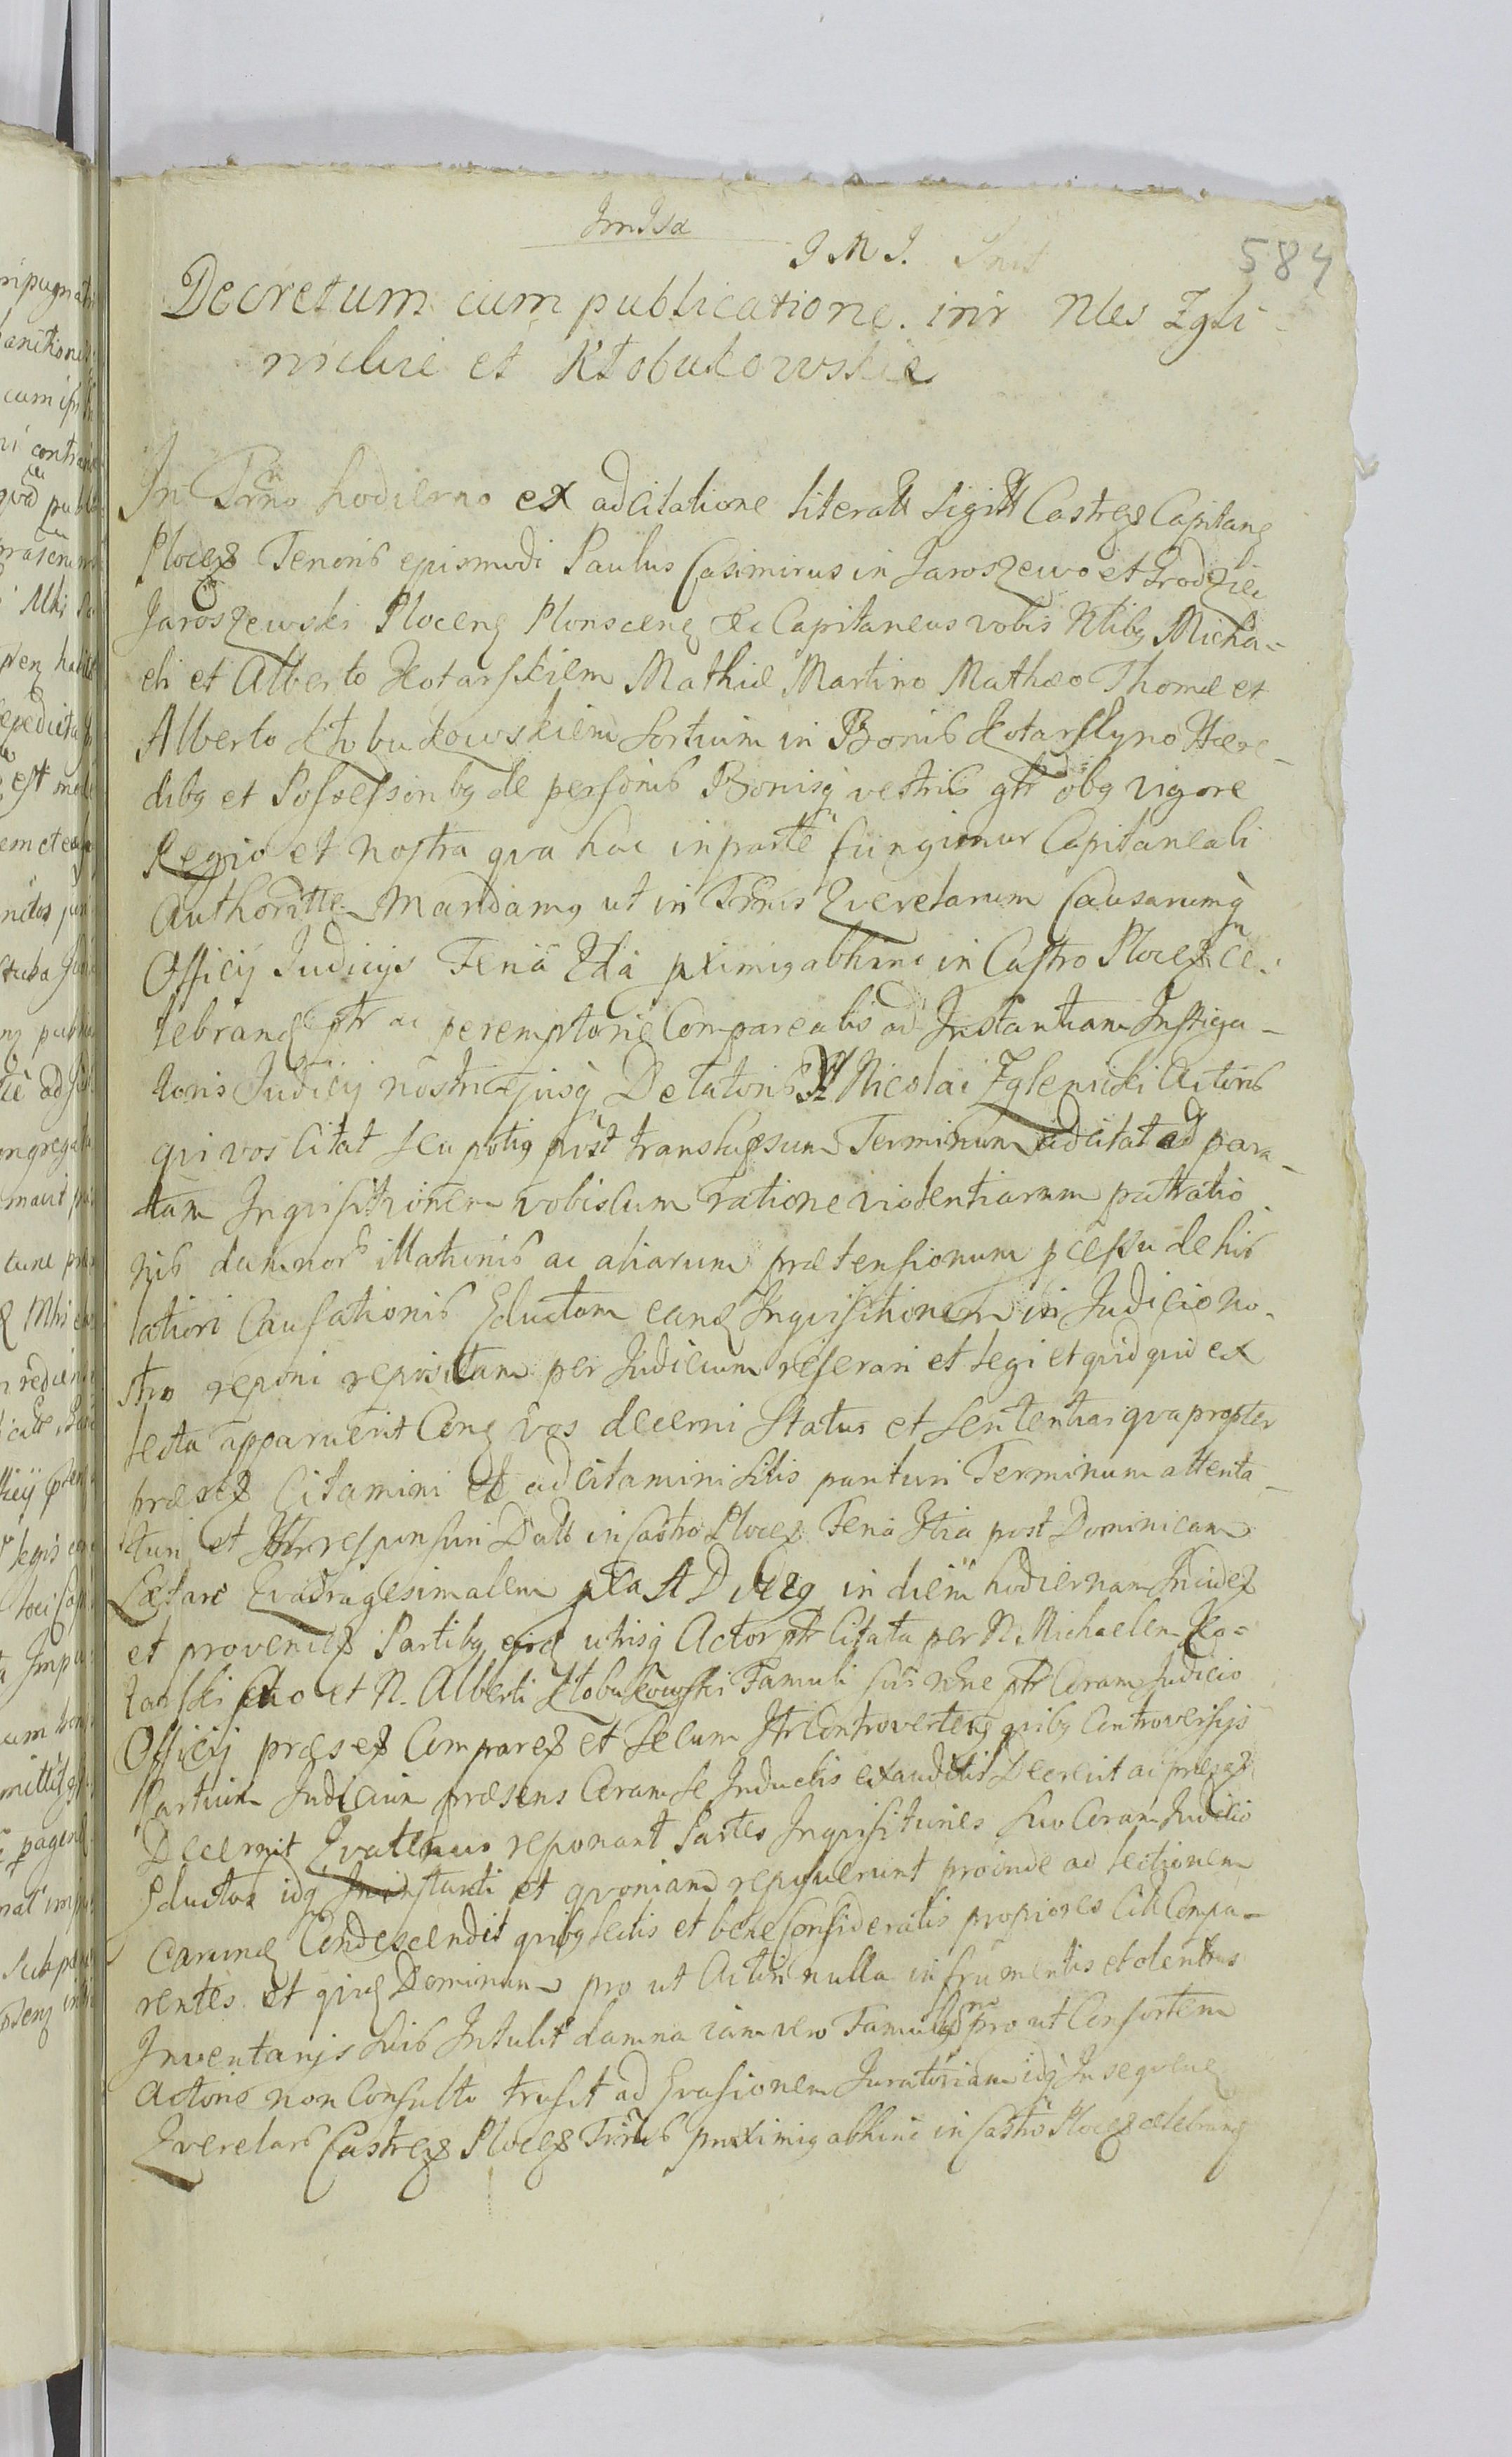 584
Decretum cum publicatione. intr Nles Zgli-
nicki et Kłobukowskie
In Trno hodierno ex adcitatione literarr Sigill Castrens Capitane
Plocens Tenoris ejusmodi Paulus Casimirus in Jaroszewo et Srodzie
Jaroszewski Plocens Plonscens &c Capitaneus vobis Nlibq Micha-
eli et Alberto Kotarskiem Mathiæ Martino Mathæo Thomæ et
Alberto Kłobukowskiem Sortium in Bonis Kotarskyno Hære-
dibq et Possessoribq de personis Bonisq vestris gtr obq vigore
Regio et nostra qva hac in parte fungimur Capitaneali
Authoritte Mandamq ut in Trnis Qverelarum Causarumq
Officij Judicijs Feria 2da pximiq abhinc in Castro Plocens ce-
lebrand ptr ac peremptorie Compareatis ad Instantiam Instiga-
toris Judicij nostri ejusq Delatoris N Nicolai Zglenicki Actoris
qvi vos Citat seu potiq post translapsum Terminum adcitat ad para-
tam Inqvisitionem vobiscum ratione violentiarum patratio
nis damnor illationis ac aliarum prætensionum pcessu de his
latiori Causationis Eductam eand Inqvisitionem in Judicio no-
stro reponi repositam per Judicium reserari et legi et qvidqvid ex
lecta apparuerit Conq vos decerni Status et sententiari qvapropter
præsens Citamini et adcitamini Sitis parituri Terminum attenta-
turi et Jttr responsuri Datt in Castro Plocens Feria 4tia post Dominicam
Lætare Qvadragesimalem pxa A D in diem hodiernam Inciden
et provenien Partibq eisd utrisq Actor ptr Citata per N. Michaelem Ko-
tarski suo et N. Alberti Kłobukowski Famuli sui nne ptr Coram Judicio
Officij præsen Comparen et Secum Jtr Controverten qvibq Controversijs
Partium Judicium præsens Coram se Inductis exauditis Decrevit ac præsens
Decernit Qvatenus reponant Partes Inqvisitiones suo Coram Judicio
Eductas idq Instanti et qvoniam reposuerunt proinde ad lectionem
earund Condescendit qvibq lectis et bene Consideratis propiores Citt Compa-
rentes et qvid Dominum pro ut Actori nulla in frumentis et olentris
Inventarijs suis Intulit damna iam vero Famulq pro ut Consortem
Actoris non Consulto trusit ad Evasionem Juratoriam idq In seqven
Qverelars Castrens Plocens Trnis proximiq abhinc in Castro Plocens celebrand